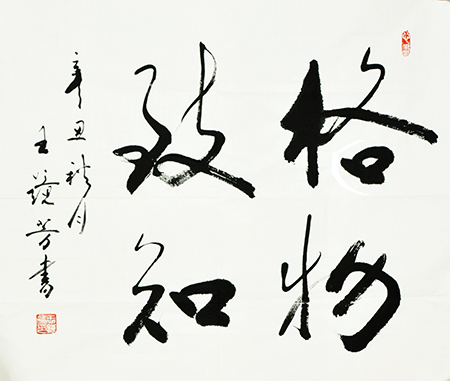 格物
致知
辛丑秋月
王
芳書